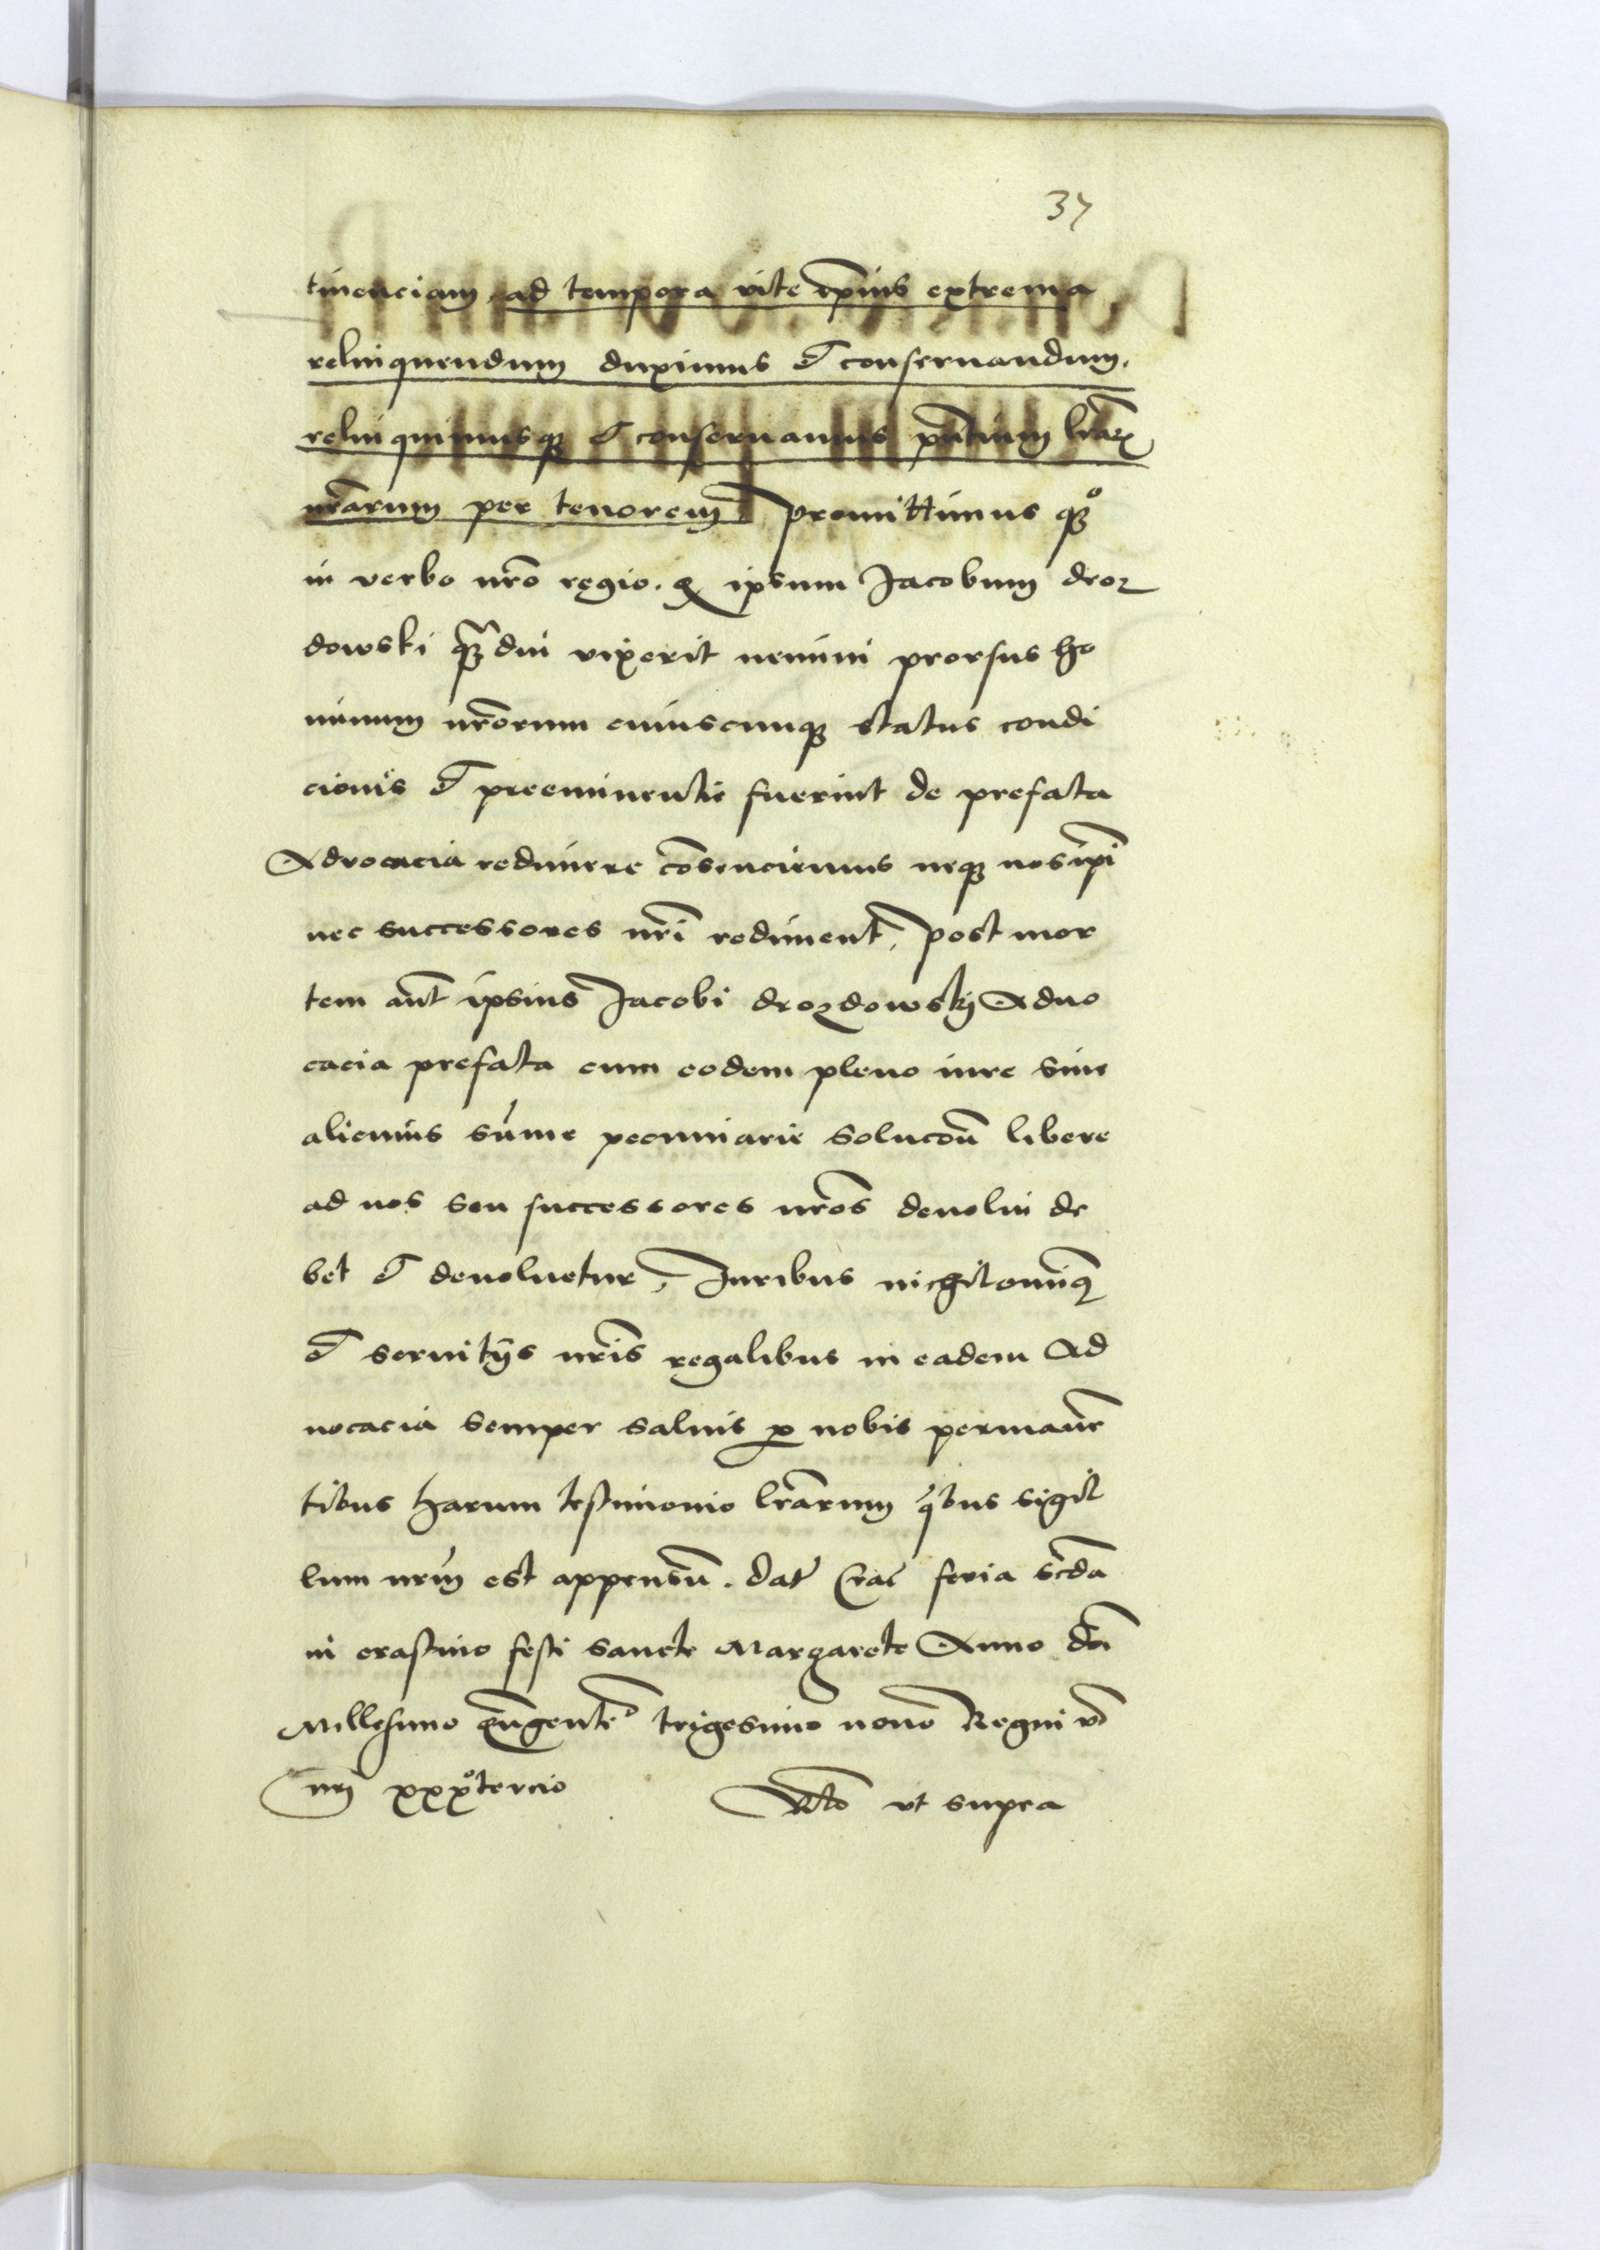 37
tinenciam ad tempora vite ipius extrema
relinquendum duximus et conseruandum.
relinquimusque et conseruamus pntium lrarum
nrarum per tenorem. Promittimus quo
in verbo nro regio. quod ipsum Jacobum droz
dowski quam diu vixerit nemini prorsus ho
minum nrorum cuiuscunque status condi
cionis et preeminentie fuerint de prefata
Advocacia redimere consenciemus neque nos ipi
nec successores nri rediment, Post mor
tem aut ipsius Jacobi drozdowskij Aduo
cacia prefata cum eodem pleno iure sine
alicuius summe pecuniarie solucone libere
ad nos seu successores nros deuolui de
bet et deuoluetur, Juribus nichilominus
et seruitijs nris regalibus in eadem Ad
uocacia semper saluis pro nobis permanen
tibus harum testimonio lrarum quibus sigil
lum nrum est appensum. Dat Crac feria scda
in crastino festi sancte Margarete Anno dni
Millesimo quingentesimo trigesimo nono Regni vero
nri xxxo tercio
Rlo vt supra